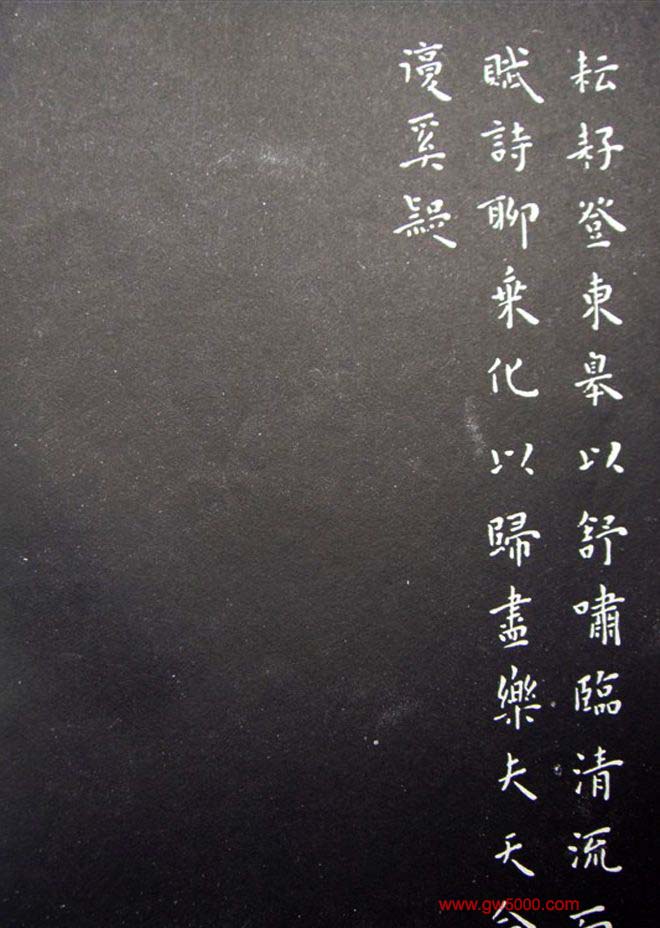 耘耔登東皋以舒嘯臨清流而
賦詩聊乘化以歸盡樂夫天命
復奚疑
www.gw5000.com